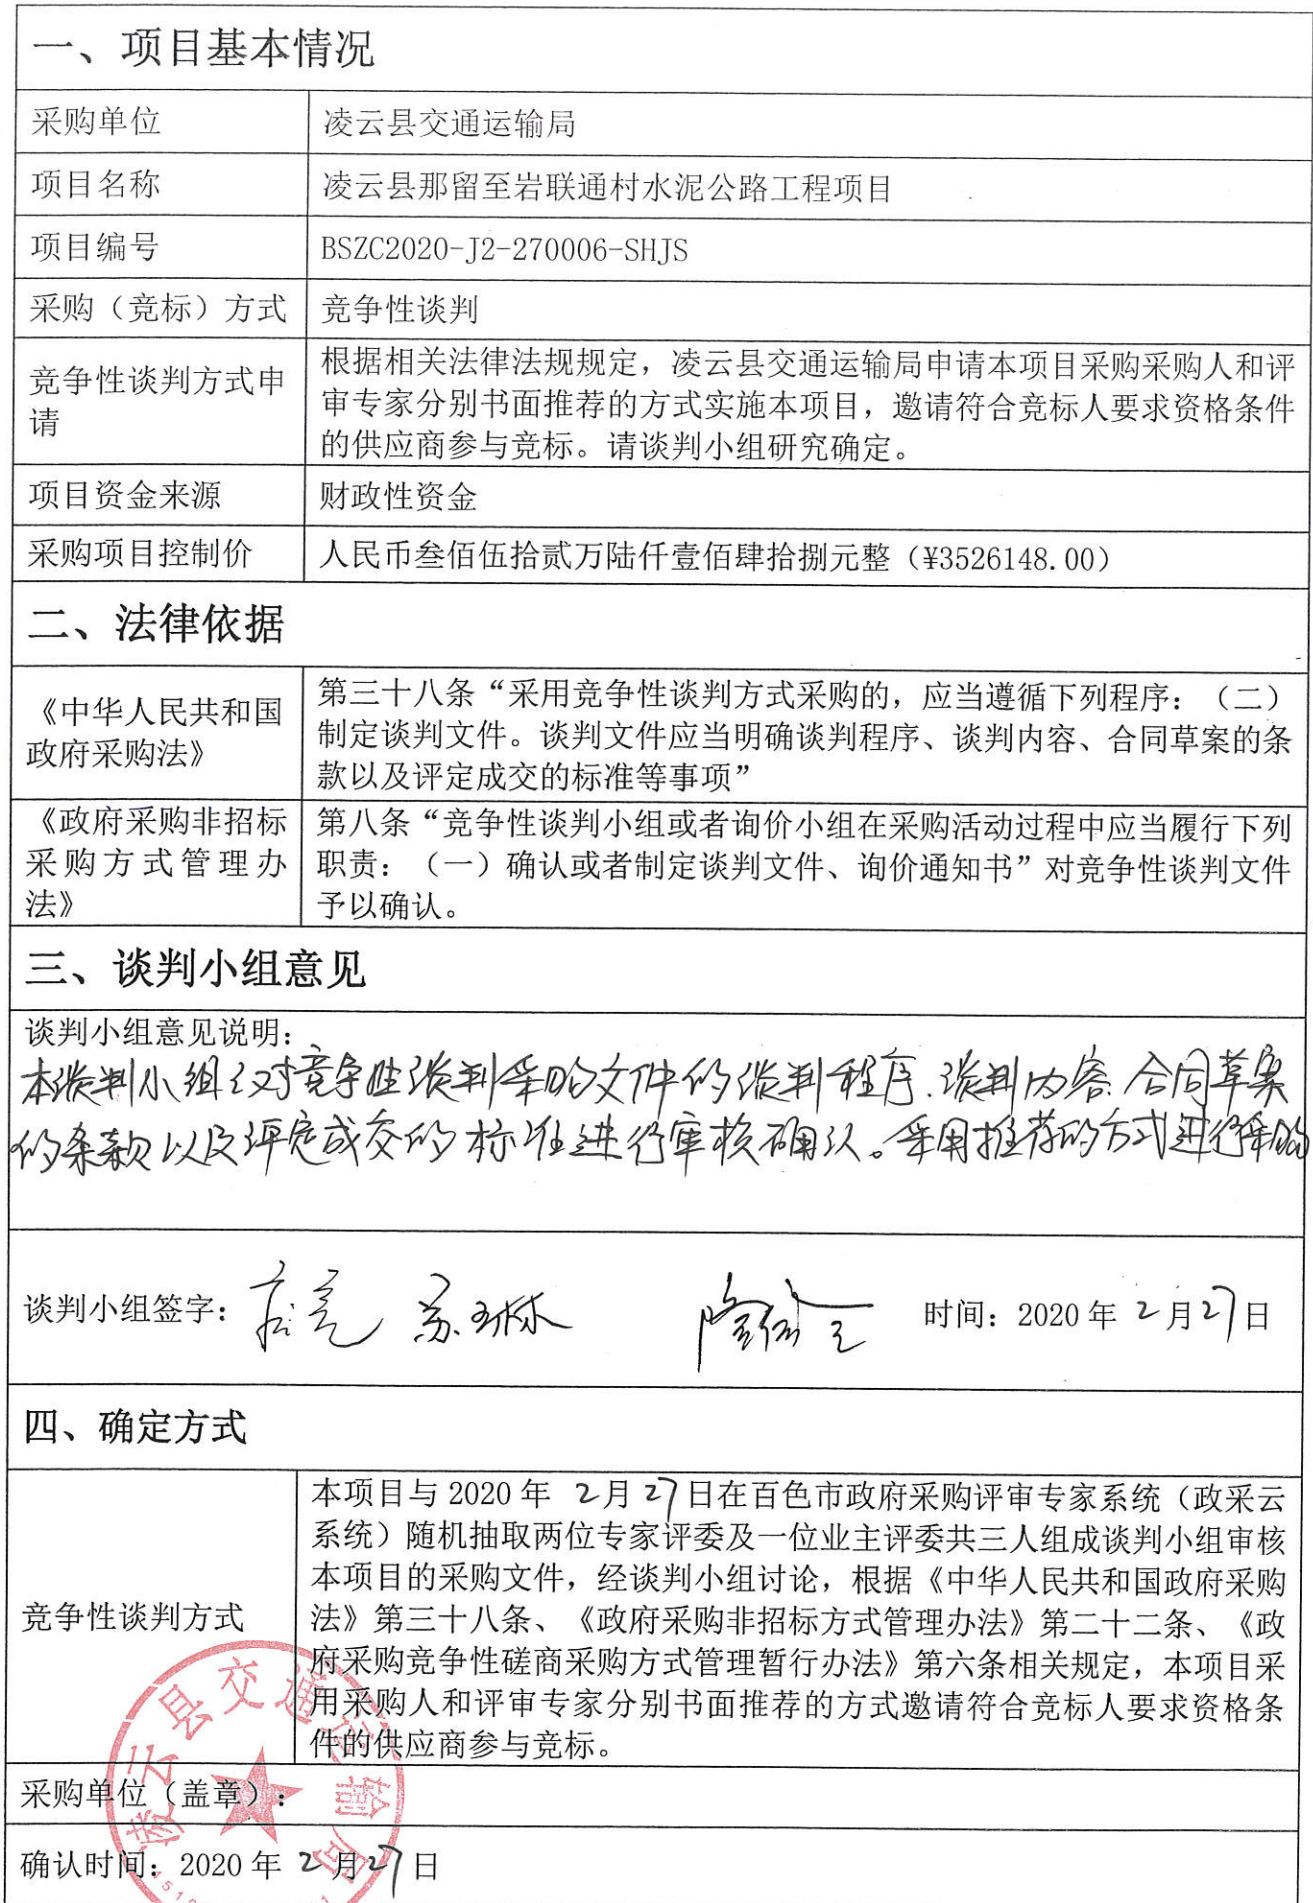 一、项目基本情况
采购单位
凌云县交通运输局
项目名称
凌云县那留至岩联通村水泥公路工程项目
项目编号
BSZC2020-J2-270006-SHJS
采购（竞标）方式
竞争性谈判
竞争性谈判方式申
请
根据相关法律法规规定，凌云县交通运输局申请本项目采购采购人和评
审专家分别书面推荐的方式实施本项目，邀请符合竞标人要求资格条件
的供应商参与竞标。请谈判小组研究确定。
项目资金来源
财政性资金
采购项目控制价
人民币叁佰伍拾贰万陆仟壹佰肆拾捌元整（¥3526148.00）
二、法律依据
《中华人民共和国
政府采购法》
第三十八条“采用竞争性谈判方式采购的，应当遵循下列程序：（二）
制定谈判文件。谈判文件应当明确谈判程序、谈判内容、合同草案的条
款以及评定成交的标准等事项”
《政府采购非招标
采购方式管理办
法》
第八条“竞争性谈判小组或者询价小组在采购活动过程中应当履行下列
职责：（一）确认或者制定谈判文件、询价通知书”对竞争性谈判文件
予以确认。
三、谈判小组意见
谈判小组意见说明：
本谈判小组已对竞争性谈判采购文件的谈判程序、谈判内容、合同草案
的条款以及评定成交的标准进行审核确认。采用推荐的方式进行采购
谈判小组签字：
时间：2020年2月27日
四、确定方式
竞争性谈判方式
本项目与2020年 2月27日在百色市政府采购评审专家系统（政采云
系统）随机抽取两位专家评委及一位业主评委共三人组成谈判小组审核
本项目的采购文件，经谈判小组讨论，根据《中华人民共和国政府采购
法》第三十八条、《政府采购非招标方式管理办法》第二十二条、《政
府采购竞争性磋商采购方式管理暂行办法》第六条相关规定，本项目采
用采购人和评审专家分别书面推荐的方式邀请符合竞标人要求资格条
件的供应商参与竞标。
凌云县交通运输局
采购单位（盖章）：
确认时间：2020年2月27日